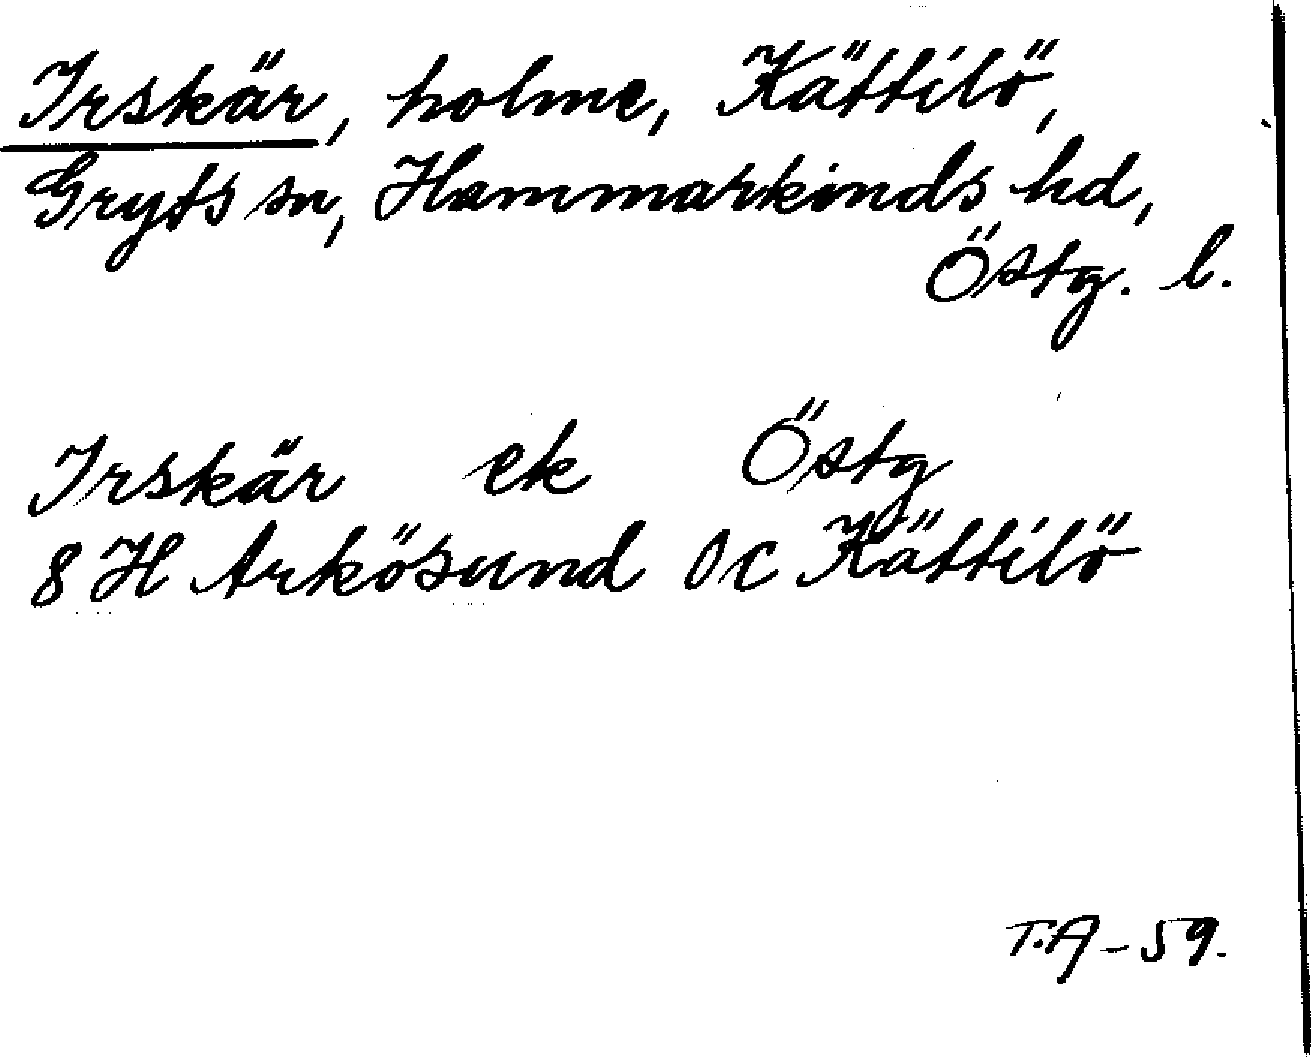 Irskär, holme, Kättilö,
Gryts sn, Hammarkinds hd,
Östg. l.
Irskär ek Östg
8 H Arkösund 0c Kättilö
T.A-59.